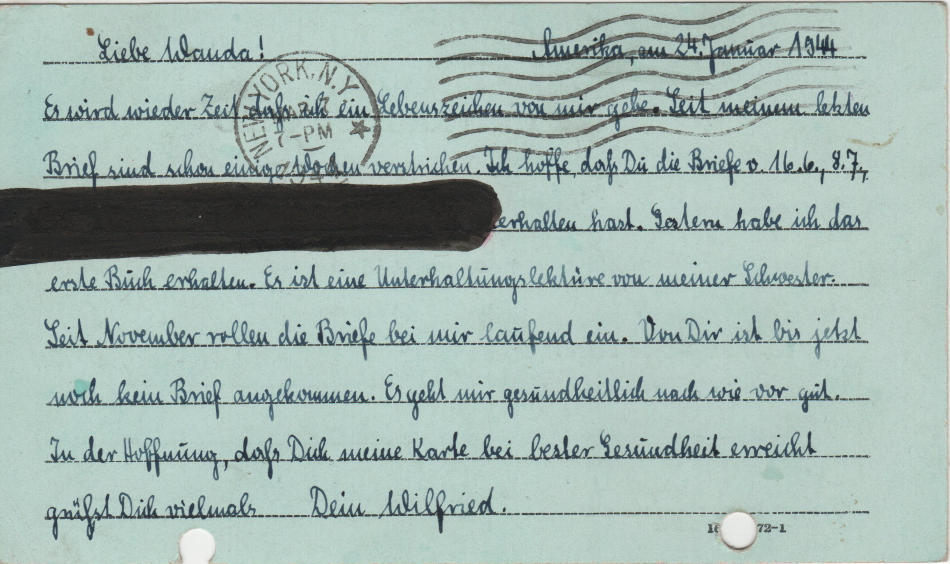 Liebe Wanda! Amerika, am 24. Januar 1944
NEW YORK, N.Y.
7-PM
Es wird wieder Zeit daß ich ein Lebenszeichen von mir gebe. Seit meinem letzten
Brief sind schon einige Wochen verstrichen. Ich hoffe, daß Du die Briefe v. 16.6., 8.7.,
erhalten hast. Gestern habe ich das
erste Buch erhalten. Es ist eine Unterhaltungslektüre von meiner Schwester.
Seit November rollen die Briefe bei mir laufend ein. Von Dir ist bis jetzt
noch kein Brief angekommen. Es geht mir gesundheitlich nach wie vor gut.
In der Hoffnung, daß Dich meine Karte bei bester Gesundheit erreicht
grüßt Dich vielmals Dein Wilfried.
72-1